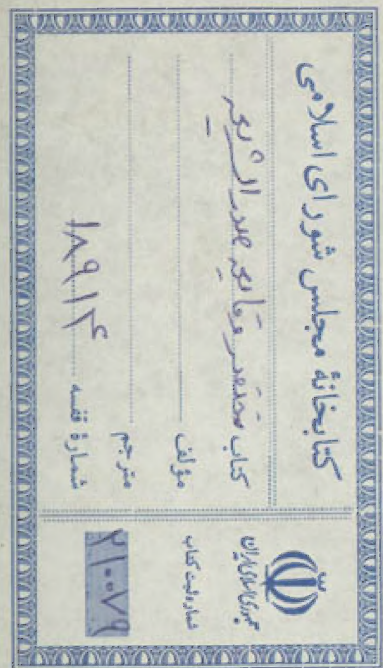 کتابخانهٔ مجلس شورای اسلامی
کتاب مختصر وقایه صدر الشریعه
مؤلف
مترجم
شمارهٔ قفسه ۱۸۹۱۴
جمهوری اسلامی ایران
شماره ثبت کتاب
۲۱۰۰۷۹